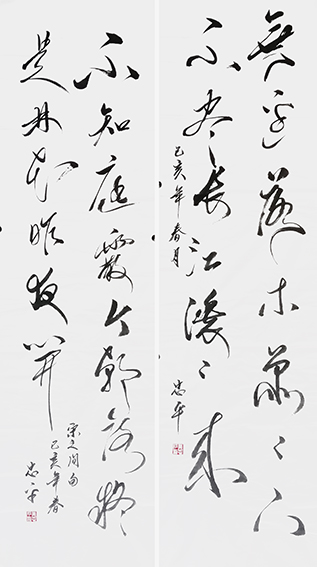 無邊落木蕭〻下
不尽長江滚〻来
己亥年春月
忠平
不知庭霰今朝落疑
是林花昨夜開
宋之问句
己亥年春
忠平